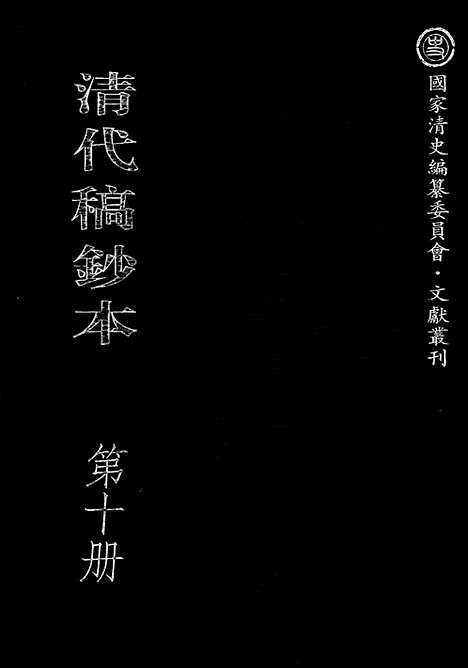 國家清史編纂委員會·文獻叢刊
清代稿鈔本
第十册